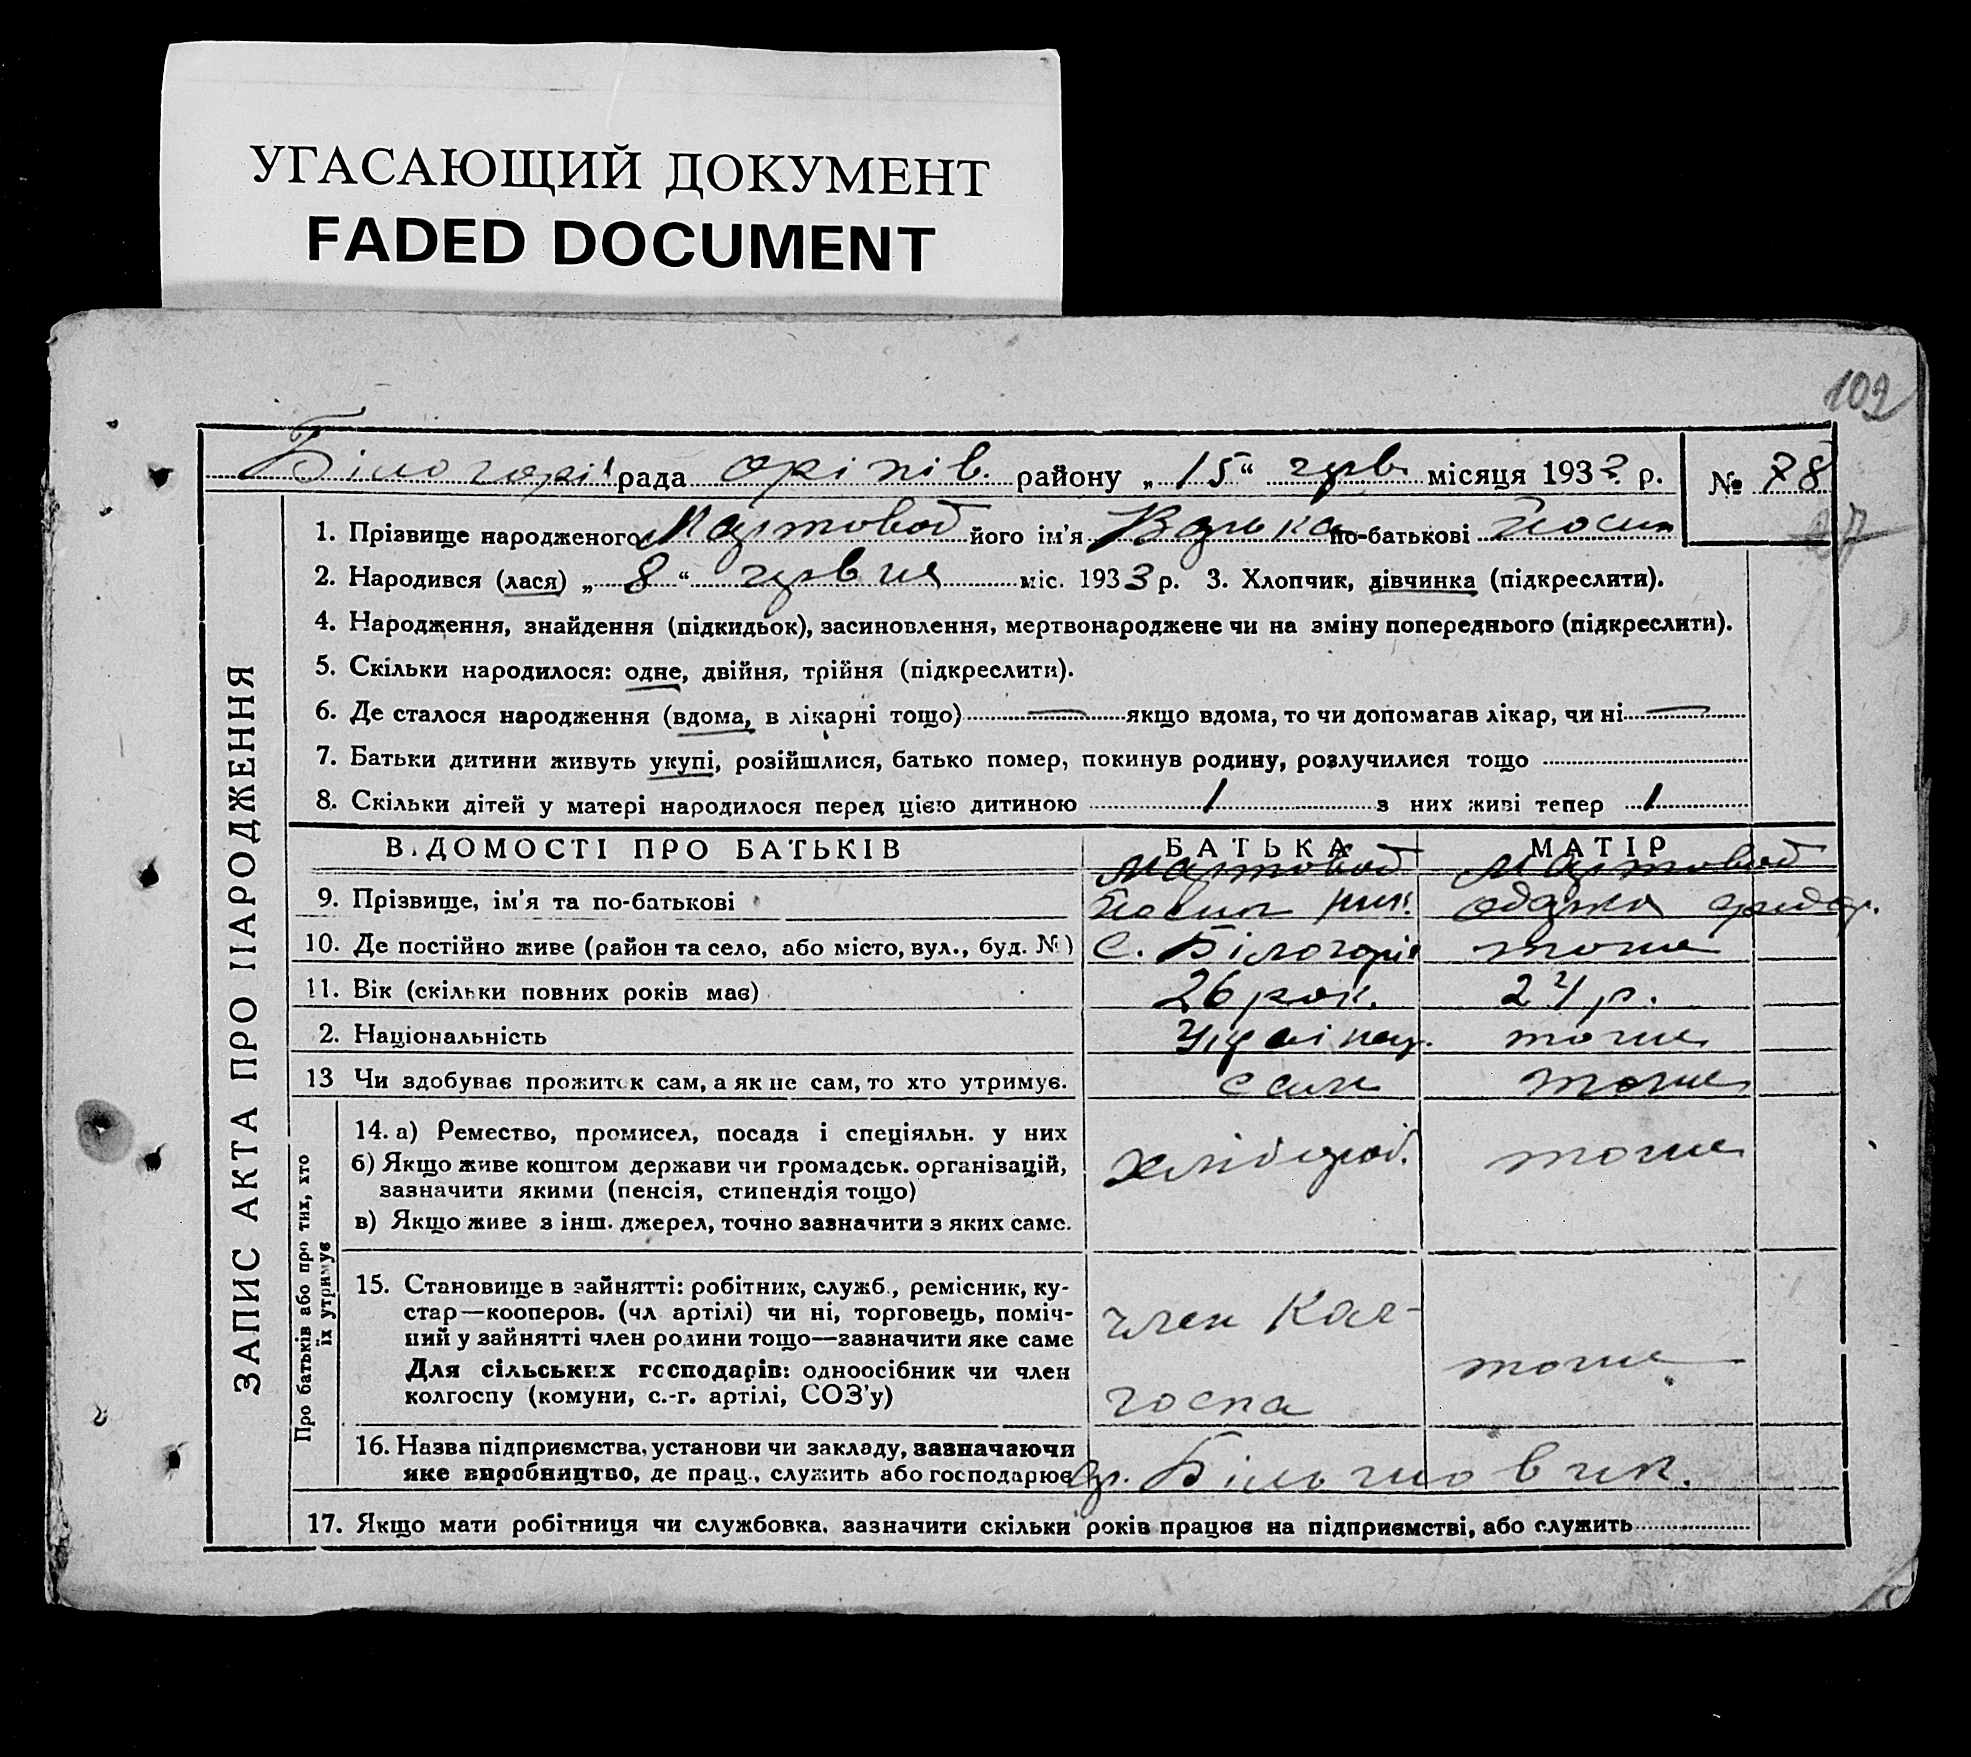 УГАСАЮЩИЙ ДОКУМЕНТ
FADED DOCUMENT
102
Білогорі рада оріхів. району „ 15 “ черв. місяця 1933 р. № 78
1. Прізвище народженого Мартовод його ім'я Валька по-батькові Йосип
27
2. Народився (лася) „ 8 “ червня міс. 1933 р. 3. Хлопчик, дівчинка (підкреслити).
4. Народження, знайдення (підкидьок), засиновлення, мертвонароджене чи на зміну попереднього (підкреслити).
5. Скільки народилося: одне, двійня, трійня (підкреслити).
6. Де сталося народження (вдома, в лікарні тощо) — якщо вдома, то чи допомагав лікар, чи ні —
7. Батьки дитини живуть укупі, розійшлися, батько помер, покинув родину, розлучилися тощо
8. Скільки дітей у матері народилося перед цією дитиною 1 з них живі тепер 1
ЗАПИС АКТА ПРО НАРОДЖЕННЯ
В.ДОМОСТІ ПРО БАТЬКІВ БАТЬКА МАТІР
Мартовод Мартовод
9. Прізвище, ім'я та по-батькові Йосип Ник. Одарка
10. Де постійно живе (район та село, або місто, вул., буд. №) с. Білогорія тоже
11. Вік (скільки повних років має) 26 рок. 24 р.
2. Національність Українец. тоже
13 Чи здобуває прожиток сам, а як не сам, то хто утримує. сам тоже
Про батьків або про тих, хто їх утримує
14. а) Ремество, промисел, посада і спеціяльн. у них хлібороб. тоже
б) Якщо живе коштом держави чи громадськ. організацій,
зазначити якими (пенсія, стипендія тощо)
в) Якщо живе з інш. джерел, точно зазначити з яких саме.
15. Становище в зайнятті: робітник, служб., ремісник, ку-
стар—кооперов. (чл. артілі) чи ні, торговець, поміч- член Кол-
ний у зайнятті член родини тощо—зазначити яке саме
Для сільських господарів: одноосібник чи член тоже
колгоспу (комуни, с.-г. артілі, СОЗ'у) госпа
16. Назва підприємства, установи чи закладу, зазначаючи
яке виробництво, де прац., служить або господарює ар. Більшовик.
17. Якщо мати робітниця чи службовка, зазначити скільки років працює на підприємстві, або служить